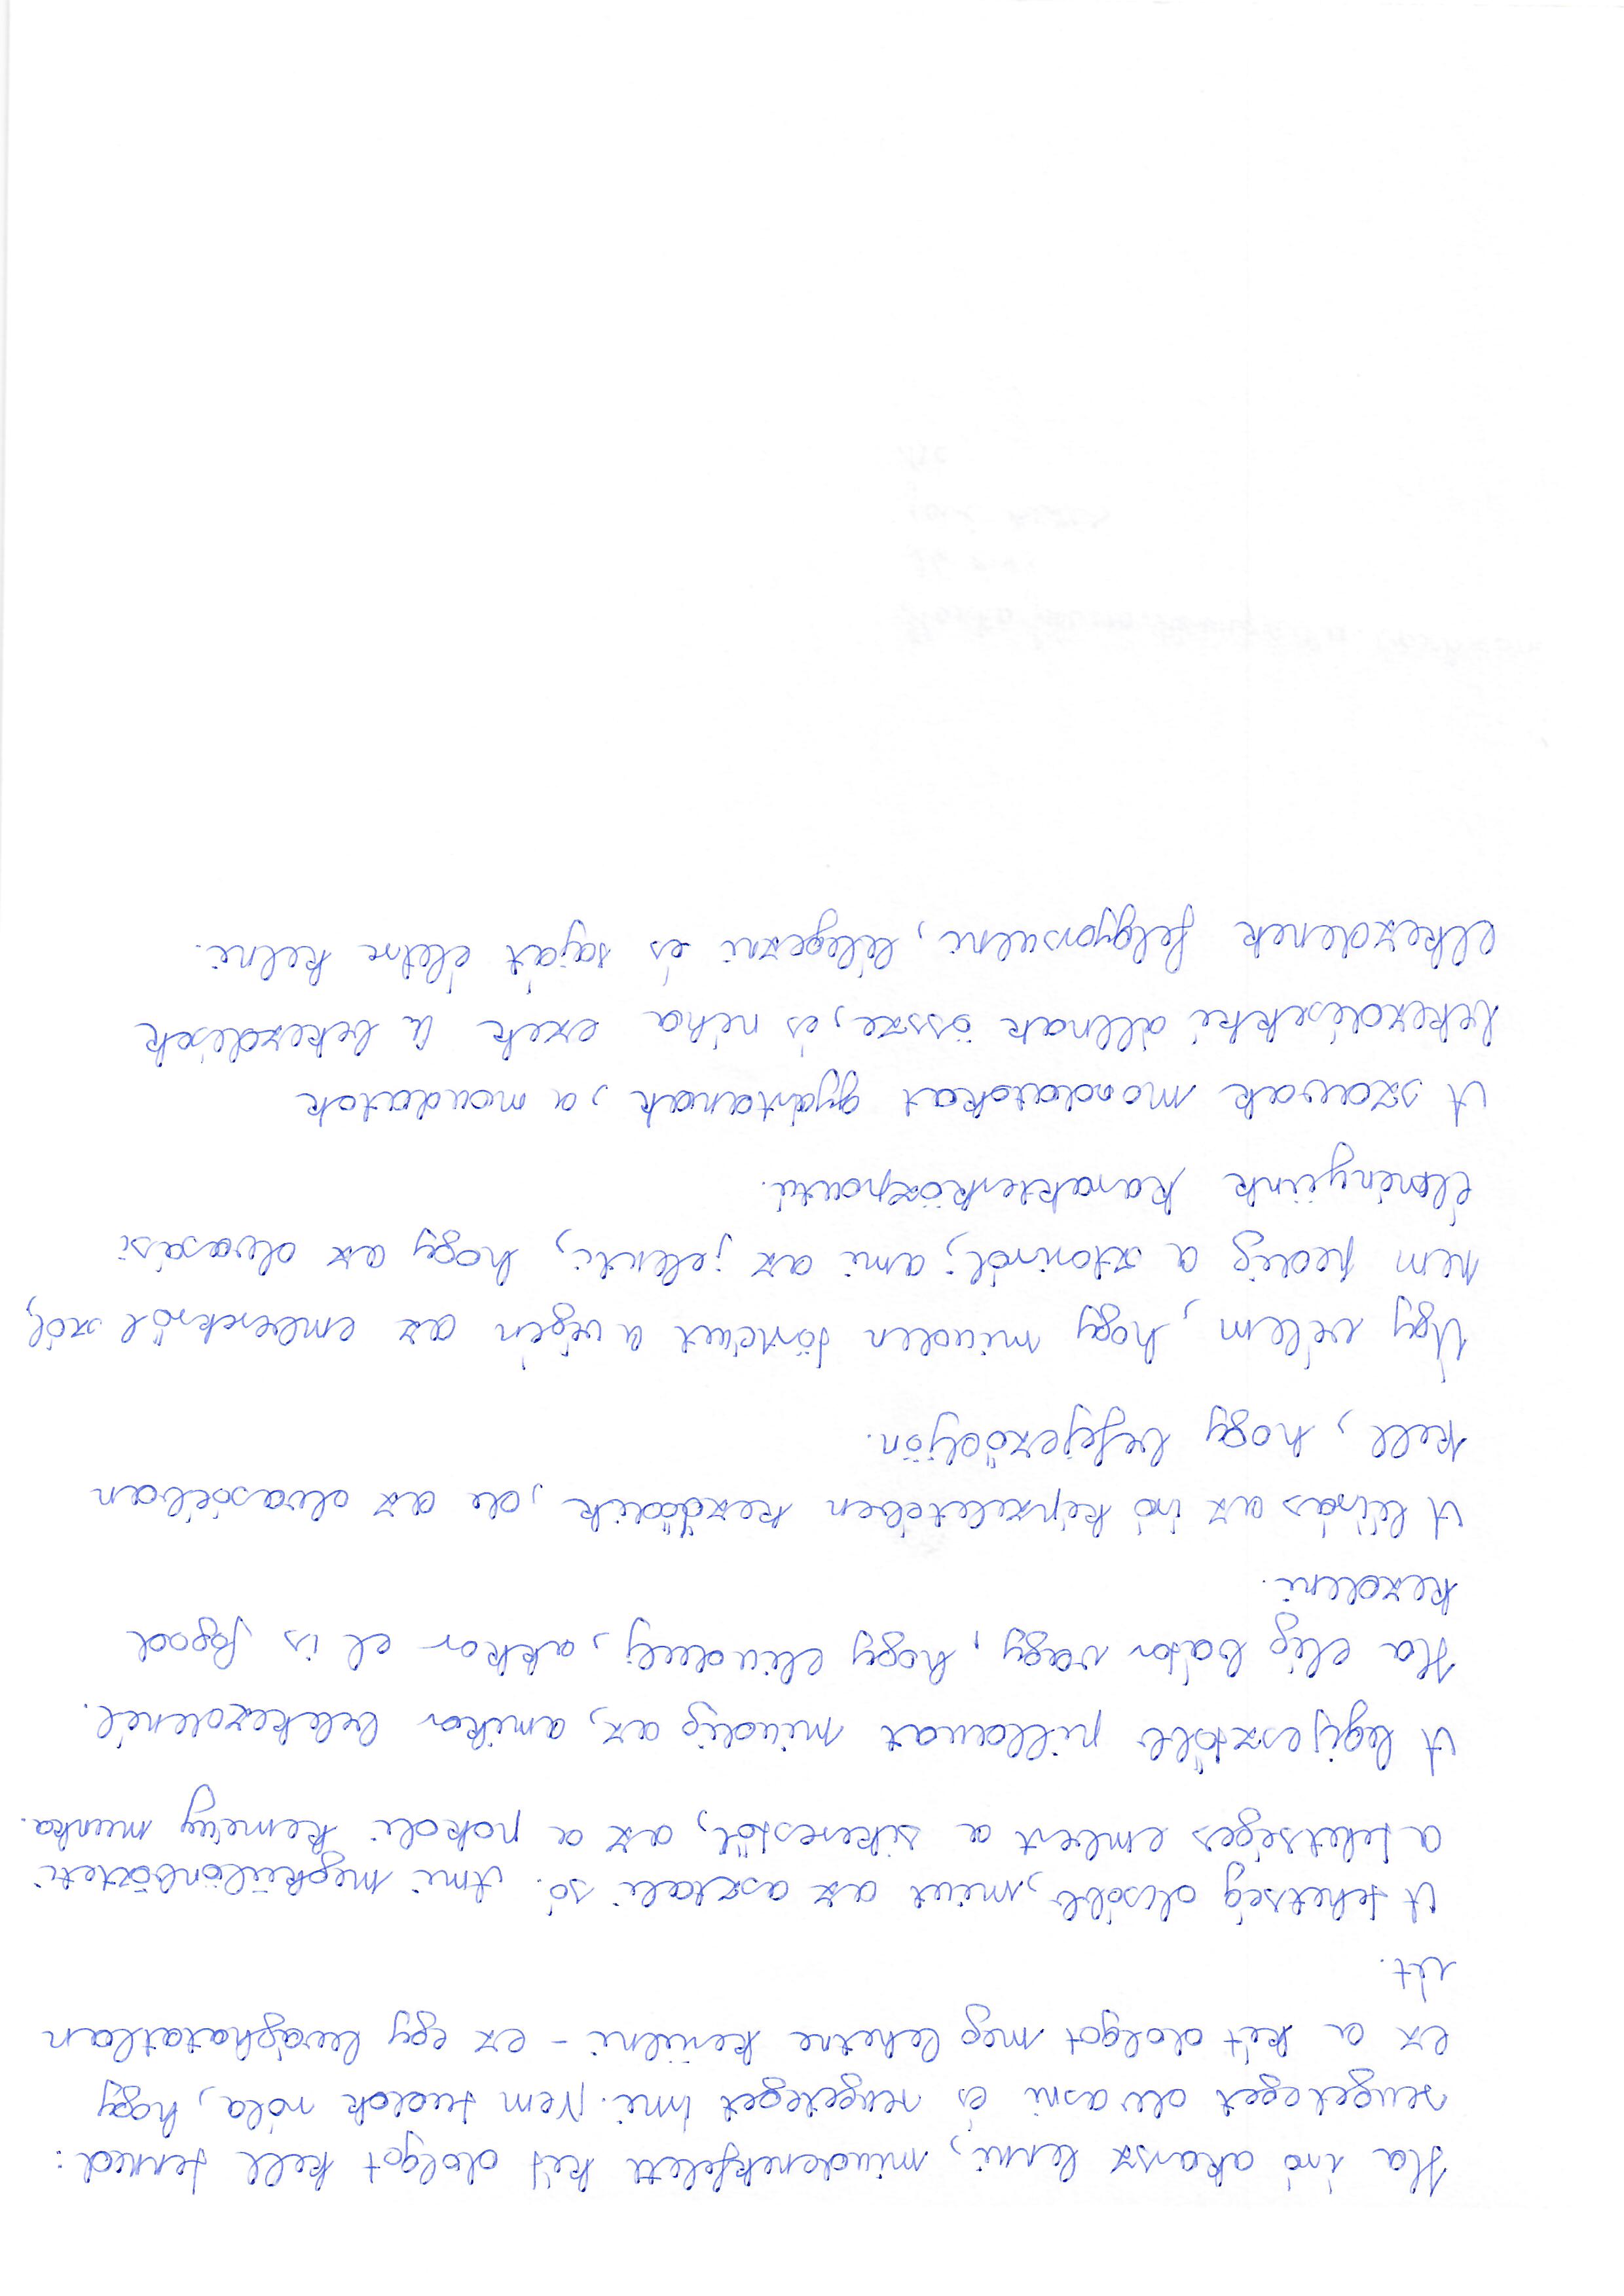 Ha író akarsz lenni, mindenekfelett két dolgot kell tenned:
rengeteget olvasni és rengeteget írni. Nem tudok róla, hogy
ez a két dolgot meg lehetne kerülni - ez egy levághatatlan
út.
A tehetség olcsóbb, mint az asztali só. Ami megkülönbözteti
a tehetséges embert a sikerestől, az a pokoli kemény munka.
A legijesztőbb pillanat mindig az, amikor belekezdenél.
Ha elég bátor vagy, hogy elindulj, akkor el is fogod
kezdeni.
A léírás az író képzeletében kezdődik, de az olvasóéban
kell, hogy befejeződjön.
Úgy vélem, hogy minden történet a végén az emberekről szól,
nem pedig a sztoriról; ami az jelenti, hogy az olvasási
élményünk karakterközpontú.
A szavak mondatokat gyártanak, a mondatok
bekezdésekké állnak össze, és néha ezek a bekezdések
elkezdenek felgyorsulni, lélegezni és saját életre kelni.